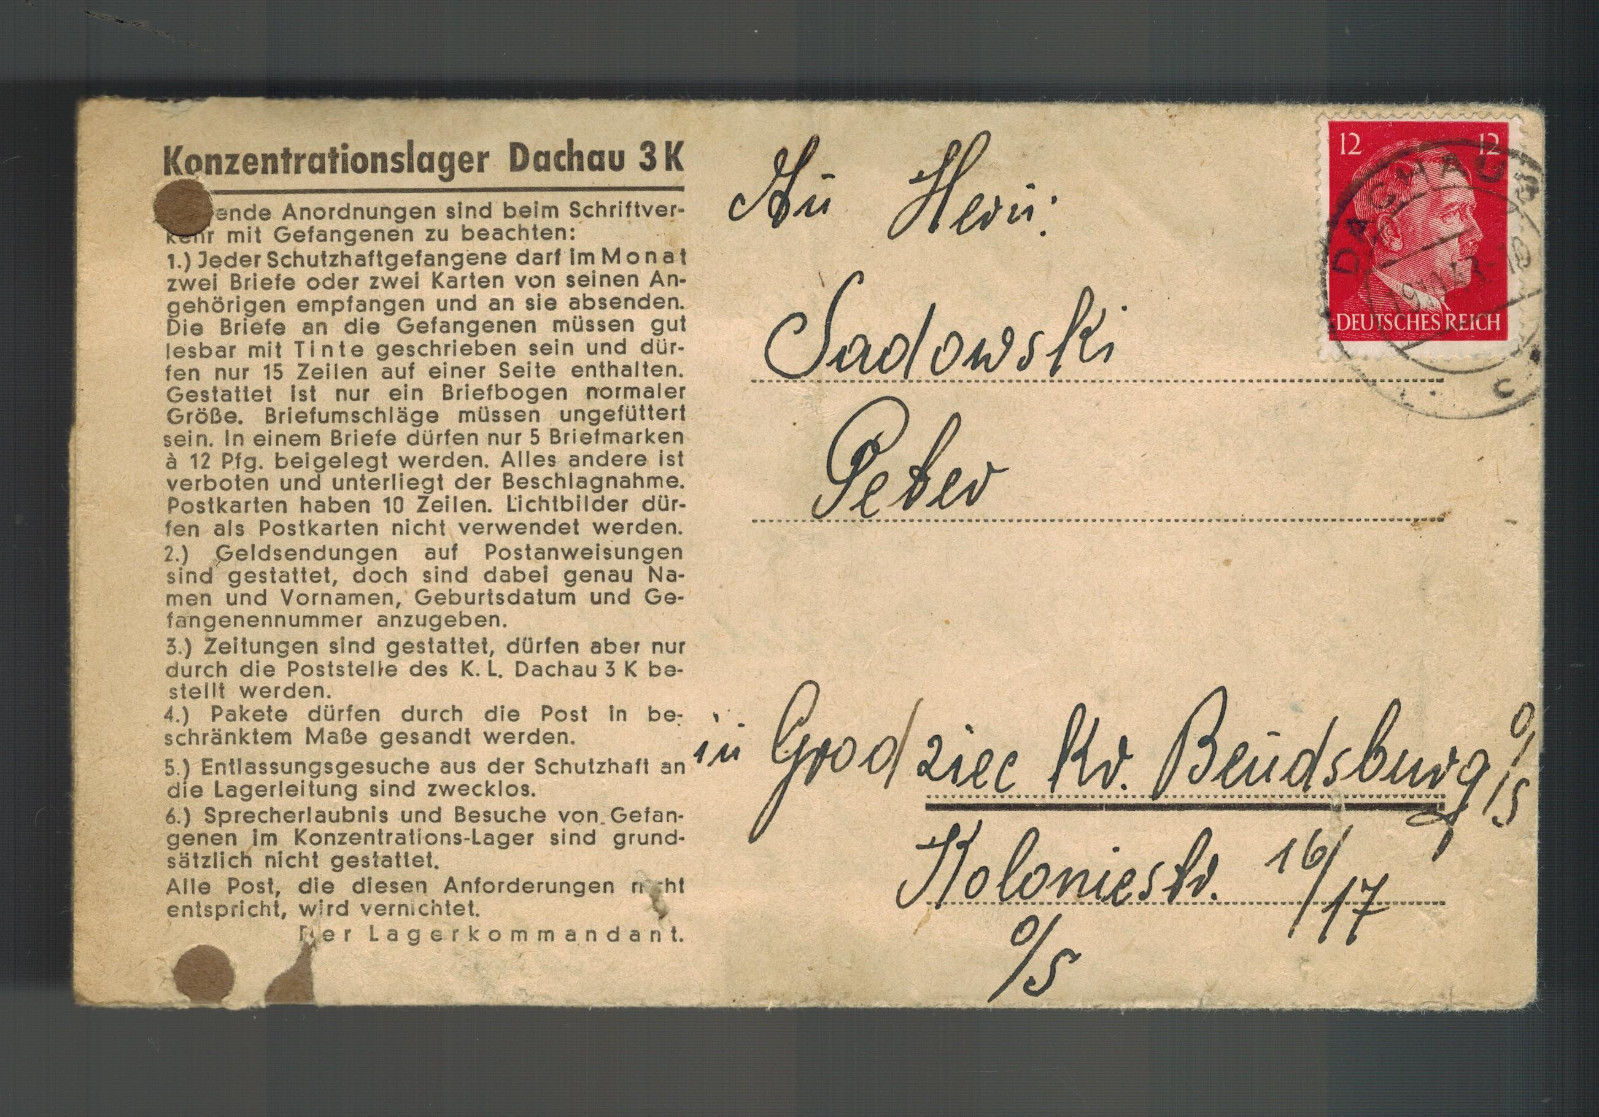 Konzentrationslager Dachau 3 K
ende Anordnungen sind beim Schriftver-
kehr mit Gefangenen zu beachten:
1.) Jeder Schutzhaftgefangene darf im Monat
zwei Briefe oder zwei Karten von seinen An-
gehörigen empfangen und an sie absenden.
Die Briefe an die Gefangenen müssen gut
lesbar mit Tinte geschrieben sein und dür-
fen nur 15 Zeilen auf einer Seite enthalten.
Gestattet ist nur ein Briefbogen normaler
Größe. Briefumschläge müssen ungefüttert
sein. In einem Briefe dürfen nur 5 Briefmarken
à 12 Pfg. beigelegt werden. Alles andere ist
verboten und unterliegt der Beschlagnahme.
Postkarten haben 10 Zeilen. Lichtbilder dür-
fen als Postkarten nicht verwendet werden.
2.) Geldsendungen auf Postanweisungen
sind gestattet, doch sind dabei genau Na-
men und Vornamen, Geburtsdatum und Ge-
fangenennummer anzugeben.
3.) Zeitungen sind gestattet, dürfen aber nur
durch die Poststelle des K. L. Dachau 3 K be-
stellt werden.
4.) Pakete dürfen durch die Post in be-
schränktem Maße gesandt werden.
5.) Entlassungsgesuche aus der Schutzhaft an
die Lagerleitung sind zwecklos.
6.) Sprecherlaubnis und Besuche von Gefan-
genen im Konzentrations-Lager sind grund-
sätzlich nicht gestattet.
Alle Post, die diesen Anforderungen nicht
entspricht, wird vernichtet.
Der Lagerkommandant.
An Herrn:
Sadowski
Peter
in Grodziec Kr. Bendsburg O/S
Koloniestr. 16/17
O/S
12 12
DEUTSCHES REICH
DACHAU
c